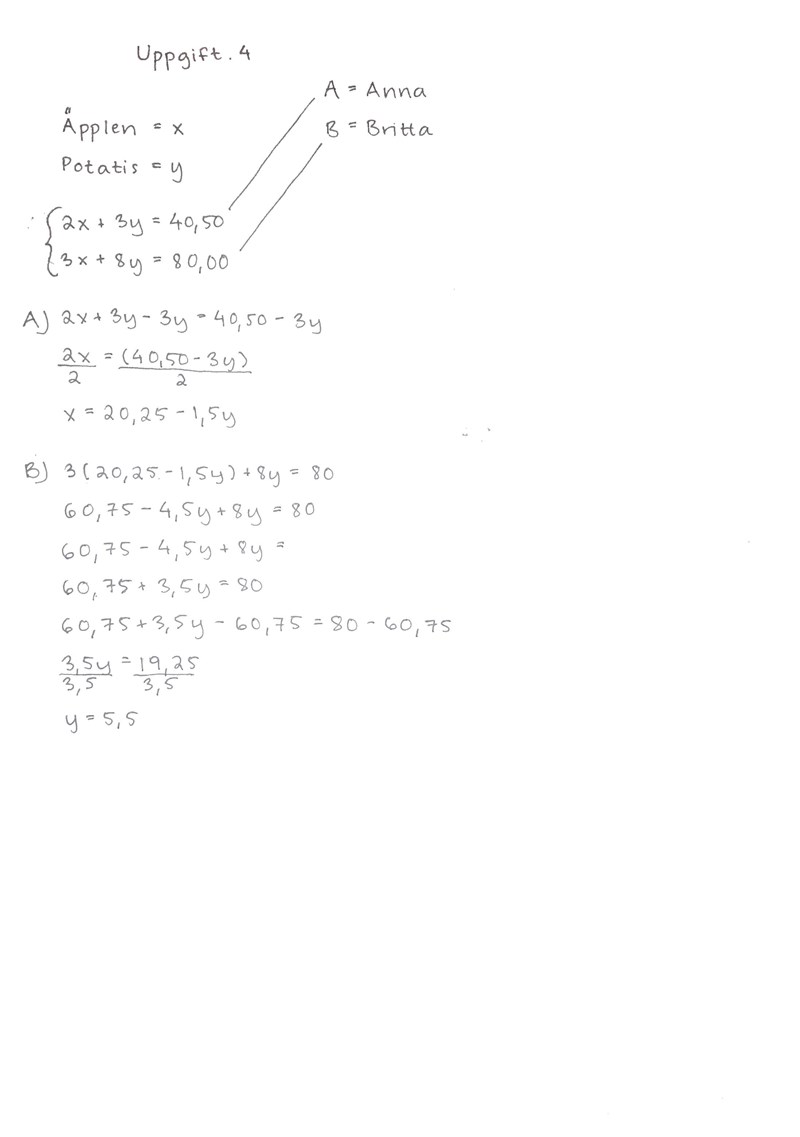 Uppgift. 4
A = Anna
Äpplen = x
B = Britta
Potatis = y
2x + 3y = 40,50
3x + 8y = 80,00
A) 2x + 3y - 3y = 40,50 - 3y
2x/2 = (40,50 - 3y)/2
x = 20,25 - 1,5y
B) 3(20,25 - 1,5y) + 8y = 80
60,75 - 4,5y + 8y = 80
60,75 - 4,5y + 8y =
60,75 + 3,5y = 80
60,75 + 3,5y - 60,75 = 80 - 60,75
3,5y/3,5 = 19,25/3,5
y = 5,5